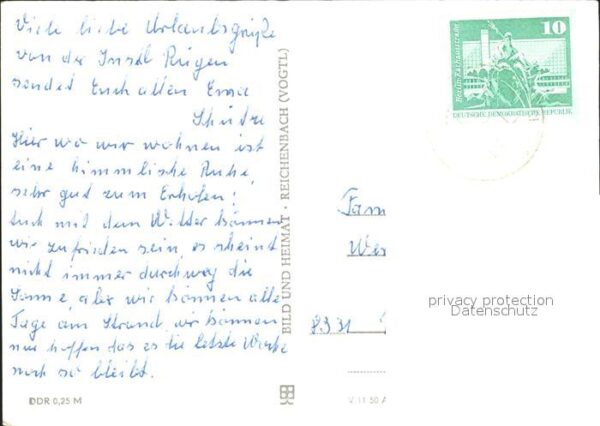 Viele liebe Urlaubsgrüße
von der Insel Rügen
sendet Euch allen Erna
Schütze
Hier wo wir wohnen ist
eine himmlische Ruhe,
sehr gut zum Erholen!
Auch mit dem Wetter können
wir zufrieden sein, es scheint
nicht immer durchweg die
Sonne, aber wir können alle
Tage am Strand, wir können
nur hoffen das es die letzte Woche
noch so bleibt.
DDR 0,25 M
BILD UND HEIMAT · REICHENBACH (VOGTL)
V 11 50 A
10
Berlin-Rathausstraße
DEUTSCHE DEMOKRATISCHE REPUBLIK
Fam
Wer
privacy protection
Datenschutz